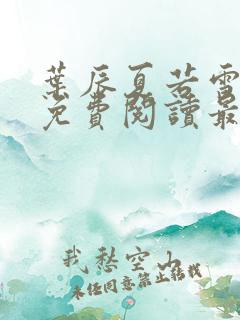 葉辰夏若雪
免費閱讀最
我愁空山
未经同意禁止转载